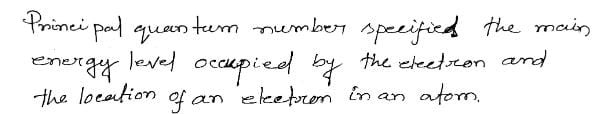 Principal quantum number specified the main
energy level occupied by the electron and
the location of an electron in an atom.